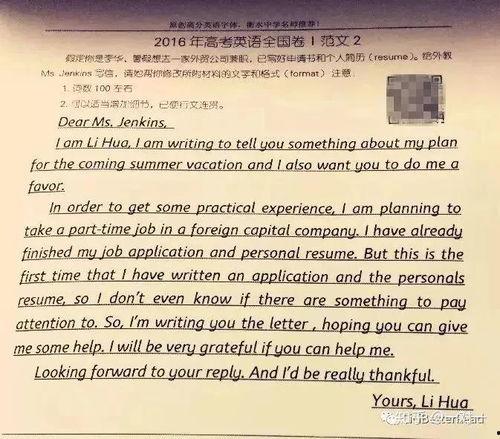 原创高分英语字体，衡水中学名师推荐！
2016年高考英语全国卷Ⅰ范文2
假定你是李华，暑假想去一家外贸公司兼职，已写好申请书和个人简历（resume）。给外教
Ms Jenkins 写信，请她帮你修改所附材料的文字和格式（format）注意：
1. 词数100左右
2. 可以适当增加细节，已使行文连贯。
Dear Ms. Jenkins,
I am Li Hua, I am writing to tell you something about my plan
for the coming summer vacation and I also want you to do me a
favor.
In order to get some practical experience, I am planning to
take a part-time job in a foreign capital company. I have already
finished my job application and personal resume. But this is the
first time that I have written an application and the personals
resume, so I don't even know if there are something to pay
attention to. So, I'm writing you the letter , hoping you can give
me some help. I will be very grateful if you can help me.
Looking forward to your reply. And I'd be really thankful.
Yours, Li Hua